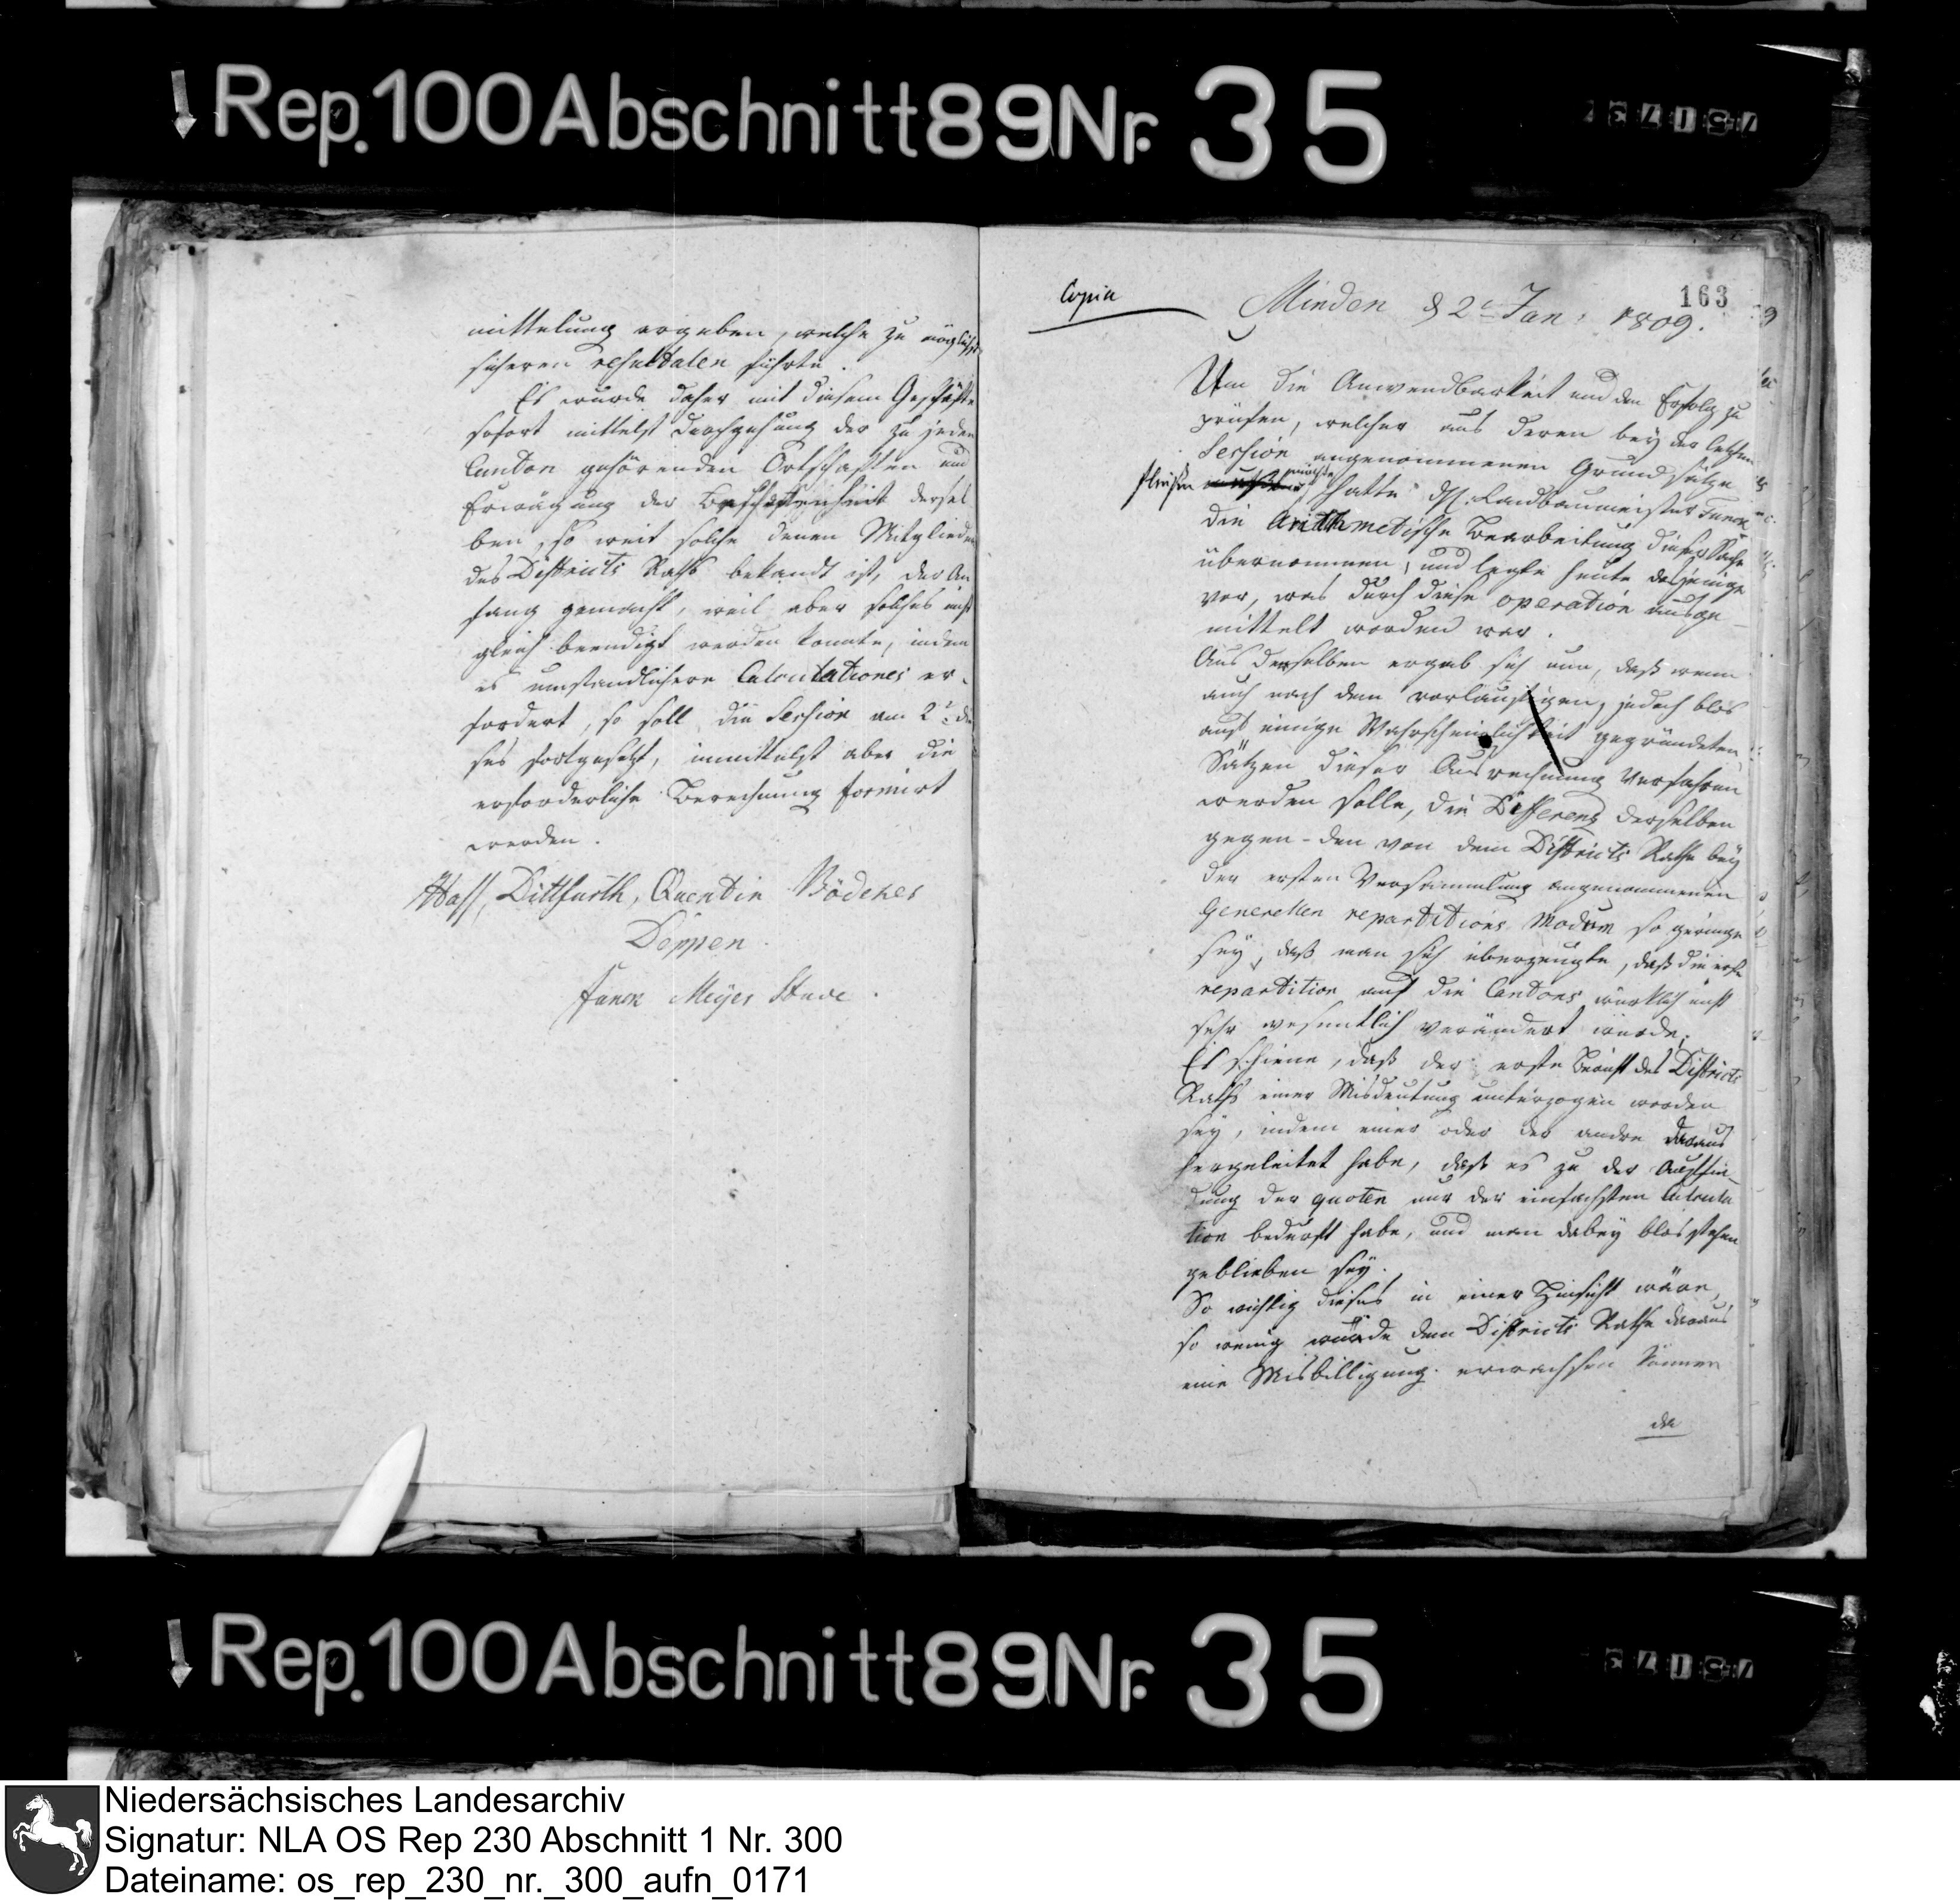 Rep. 100 Abschnitt 89 Nr. 35
mittelung ergeben, welche zu möglichst
sicheren resultaten führte.
Es wurde daher mit diesem Geschäfte
sofort mittelst Durchgehung der zu jeden
Canton gehörenden Ortschaften und
Erwägung der Beschaffenheit dersel
ben, so weit solche denen Mitgliedern
des Districts Raths bekandt ist, der An
fang gemacht, weil aber solches nicht
gleich beendigt werden konnte, indem
es umständlichere Calculationes er-
fordert, so soll die Session am 2t. die
ses fortgesetzt, inmittelst aber die
erforderliche Berechnung formirt
werden.
Hass, Dittfurth, Quentin Bödeker
Deppen.
Funck Meyer Stuve.
163
Copia
Minden d 2t Jan: 1809.
Um die Anwendbarkeit und den Erfolg zu
prüfen, welcher aus deren bey der letzten
Session angenommenen Grundsätze
fließen möchte, hatte H. Landbaumeister Funck
die Arithmetische Bearbeitung dieser Sache
übernommen, und legte heute dasjenige
vor, was durch diese operation ausge-
mittelt worden war.
Aus derselben ergab sich nun, daß wenn
auch nach den vorläufigen, jedoch blos
auf einige Wahrscheinlichkeit gegründeten
Sätzen dieser Ausrechnung verfahren
werden solle, die Differenz derselben
gegen den von dem Districts Rathe bey
der ersten Versammlung angenommenen
Generellen repartitions Modum so geringe
sey, daß man sich überzeugte, daß die erste
repartition auf die Cantons würklich nicht
sehr wesentlich verändert würde.
Es schiene, daß der erste Bericht des Districts
Raths einer Misdeutung unterzogen worden
sey, indem einer oder der andre daraus
hergeleitet habe, daß es zu der Ausfin-
dung der quoten nur der einfachsten Calcula
tion bedurft habe, und man dabey blos stehen
geblieben sey.
So richtig dieses in einer Hinsicht wäre,
so wenig würde dem Districts Rathe daraus
eine Misbilligung erwachsen können
da
Rep. 100 Abschnitt 89 Nr. 35
Niedersächsisches Landesarchiv
Signatur: NLA OS Rep 230 Abschnitt 1 Nr. 300
Dateiname: os_rep_230_nr._300_aufn_0171